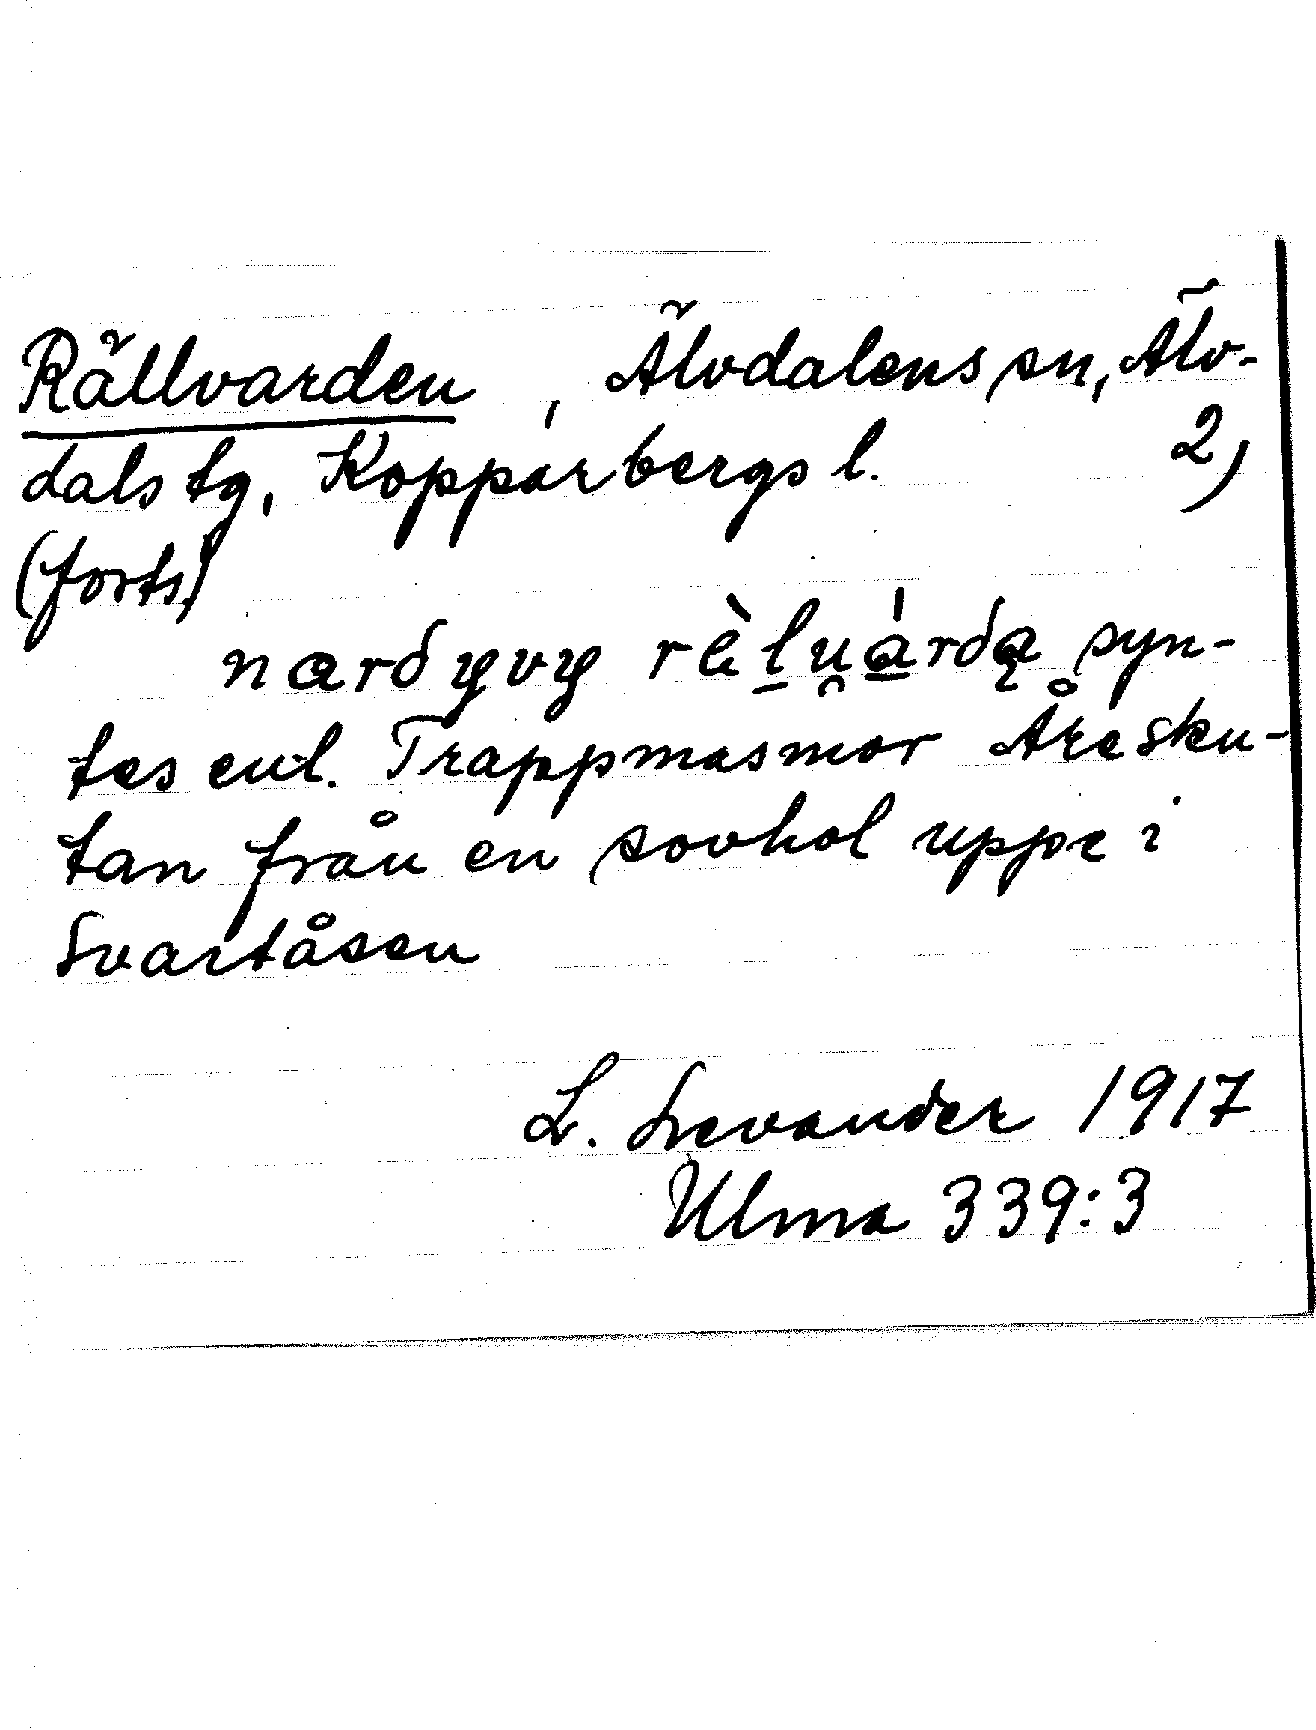 Rällvarden, Älvdalens sn, Älv-
dals tg, Kopparbergs l. 2)
(forts)
syn-
tes enl. Trappmasmor Åresku-
tan från en sovhol uppe i
Svartåsen
L. Levander 1917
Ulma 339:3